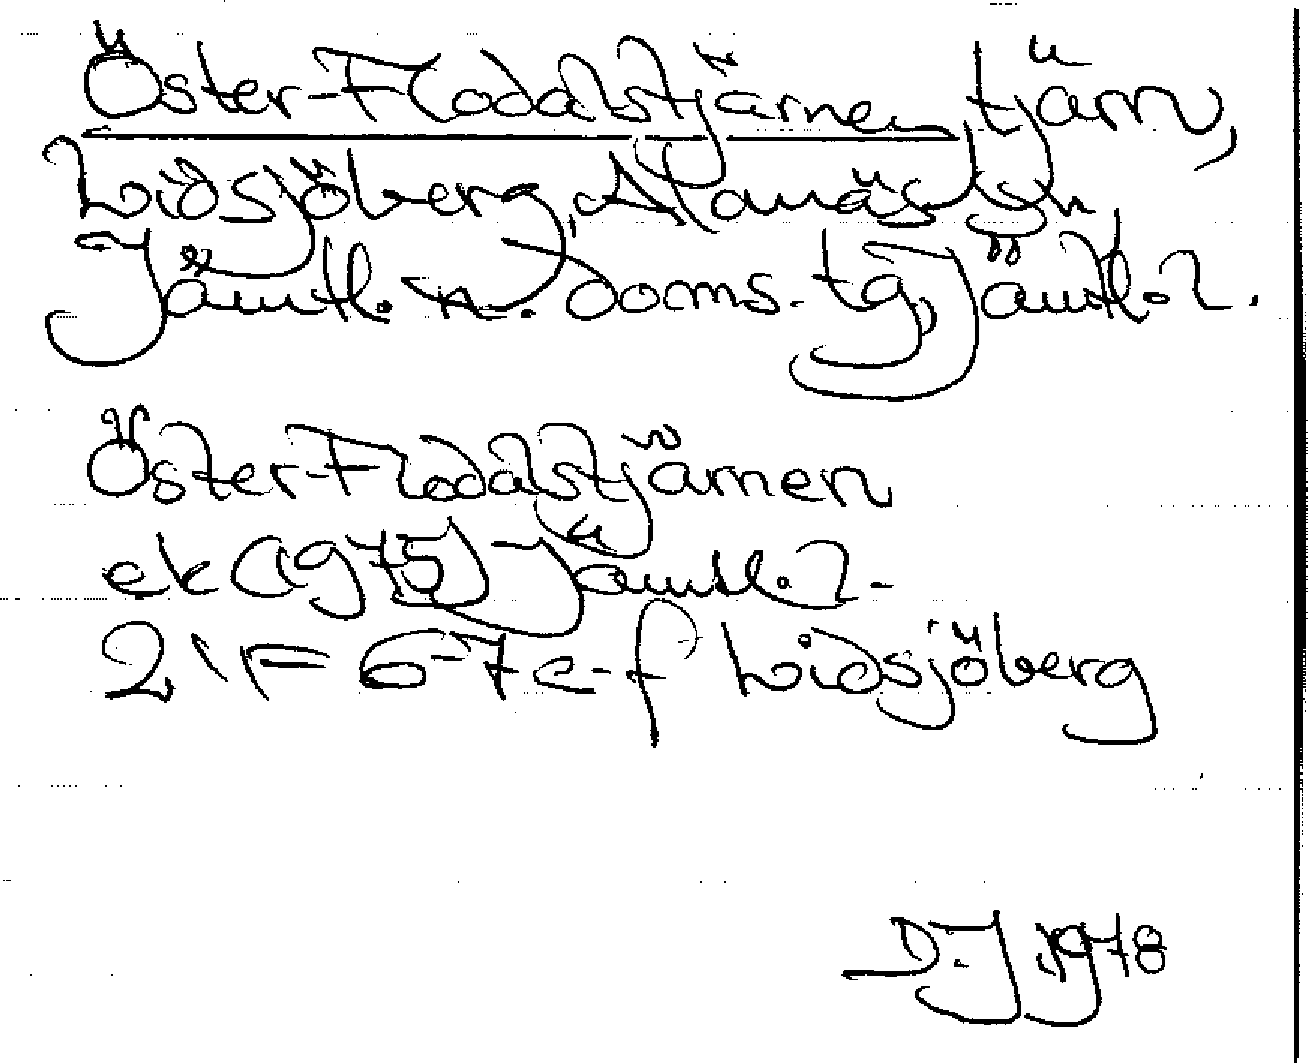 Öster-Flodalstjärnen tjärn,
Lidsjöberg, Alanäs sn
Jämtl. n. doms. tg, Jämtl. l.
Öster-Flodalstjärnen
ek (1975) Jämtl. l.
21F 6-7e-f Lidsjöberg
D.J 1978